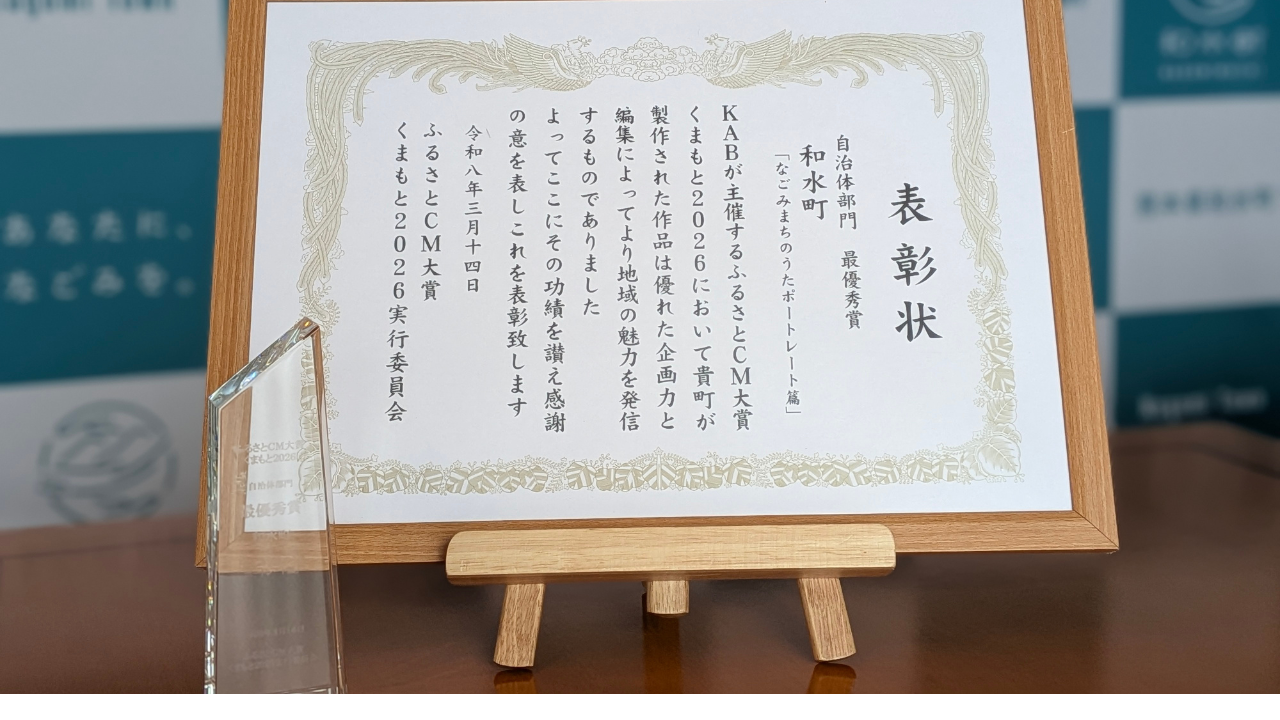 表彰状
自治体部門 最優秀賞
和水町
「なごみまちのうたポートレート篇」
KABが主催するふるさとCM大賞
くまもと2026において貴町が
製作された作品は優れた企画力と
編集によってより地域の魅力を発信
するものでありました
よってここにその功績を讃え感謝
の意を表しこれを表彰致します
令和八年三月十四日
ふるさとCM大賞
くまもと2026実行委員会
さとCM大賞
まもと2026
自治体部門
優秀賞
あなたに、
なごみを。